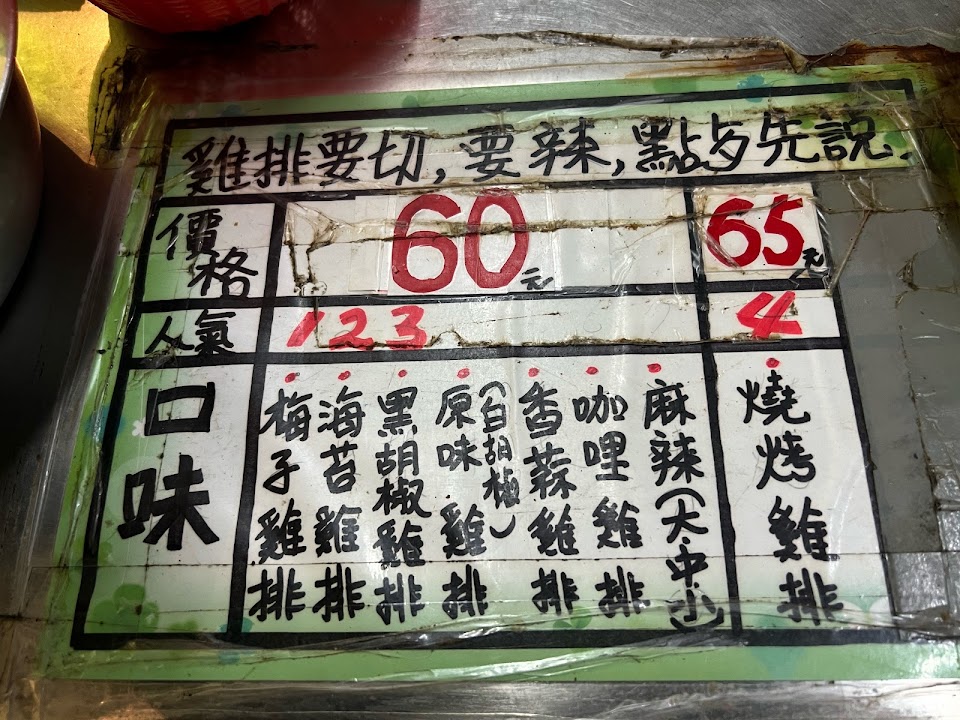 雞排要切,要辣,點時先說.
價格 60元 65元
人氣 1 2 3 4
口味
梅子雞排
海苔雞排
黑胡椒雞排
原味雞排
(白胡椒)
香蒜雞排
咖哩雞排
麻辣(大.中.小)
燒烤雞排